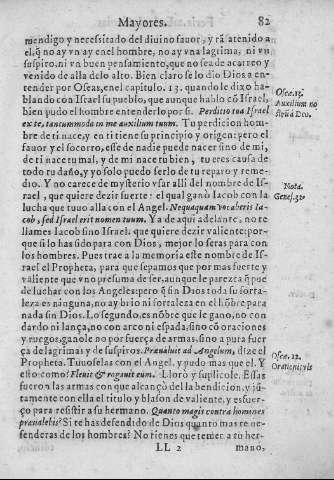 Mayores. 82
mendigo y necessitado del diuino fauor, y rã atenido a
el, q̃ no ay vn ay en el hombre, no ay vna lagrima, ni vn
suspiro, ni vn buen pensamiento, que no sea de acarreo y
venido de alla delo alto. Bien claro se lo dio Dios a en-
tender por Oseas, en el capitulo. 13. quando le dixo ha-
blando con Israel su pueblo, que aunque hablo cõ Israel,
bien pudo el hombre entenderlo por si. Perditio tua Israel
ex te, tantummodo in me auxilium tuum. Tu perdicion hom-
bre de ti nace, y en ti tiene su principio y origen: pero el
fauor y el socorro, esse de nadie puede nacer sino de mi,
de ti nace tu mal, y de mi nace tu bien, tu eres causa de
todo tu daño, y yo solo puedo serlo de tu reparo y reme-
dio. Y no carece de mysterio vsar alli del nombre de Is-
rael, que quiere dezir fuerte: el qual ganò Iacob con la
lucha que tuuo alla con el Angel. Nequaquam vocaberis Ia-
cob, sed Israel erit nomen tuum. Ya de aqui adelante, no te
llames Iacob sino Israel: que quiere dezir valiente: por-
que si lo has sido para con Dios, mejor lo seras para con
los hombres. Pues trae a la memoria este nombre de Is-
rael el Propheta, para que sepamos que por mas fuerte y
valiente que vno presuma de ser, aunque le parezca q̃ pue
de luchar con los Angeles: pero q̃ sin Dios toda su forta-
leza es ninguna, no ay brio ni fortaleza en el hõbre para
nada sin Dios. Lo segundo, es nõbre que le gano, no con
dardo ni lança, no con arco ni espada, sino cõ oraciones
y ruegos, ganole no por fuerça de armas, sino a pura fuer
ça de lagrimas y de suspiros. Praualuit ad Angelum, dize el
Propheta. Tuuoselas con el Angel, y pudo mas que el. Y
esto como? Fleuit & rogauit eum. Llorò y suplicole. Essas
fueron las armas con que alcançò del la bendicion, y jũ-
tamente con ella el titulo y blason de valiente, y esfuer-
ço para resistir a su hermano. Quanto magis contra homines
praualebis? Si te has defendido de Dios quanto mas te de-
fenderas de los hombres? No tienes que temer a tu her-
LL 2 mano,
Osee. 13.
Auxilium no
strũ à Deo.
Nota.
Genes. 32.
Osee. 12.